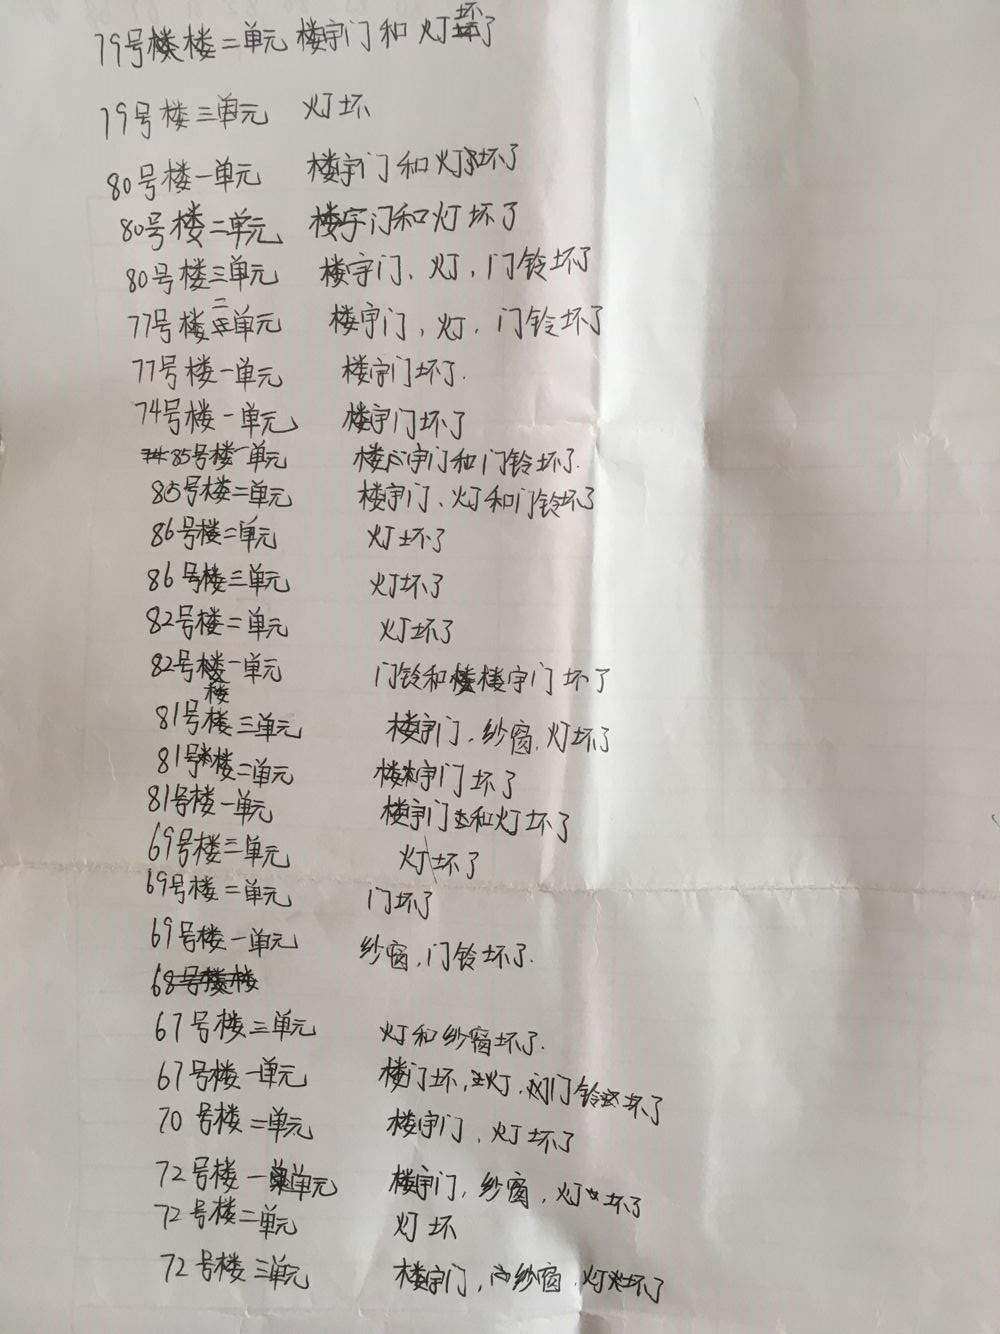 79号楼楼二单元 楼宇门和灯坏了
79号楼三单元 灯坏
80号楼一单元 楼宇门和灯坏了
80号楼二单元 楼宇门和灯坏了
80号楼三单元 楼宇门、灯,门铃坏了
77号楼二单元 楼宇门,灯,门铃坏了
77号楼一单元 楼宇门坏了.
74号楼一单元 楼宇门坏了
85号楼一单元 楼宇门和门铃坏了.
85号楼二单元 楼宇门、灯和门铃坏了
86号楼二单元 灯坏了
86号楼三单元 灯坏了
82号楼二单元 灯坏了
82号楼一单元 门铃和楼宇门坏了
81号楼三单元 楼宇门,纱窗,灯坏了
81号楼二单元 楼宇门坏了
81号楼一单元 楼宇门和灯坏了
69号楼三单元 灯坏了
69号楼二单元 门坏了
69号楼一单元 纱窗,门铃坏了.
68号楼楼
67号楼三单元 灯和纱窗坏了.
67号楼一单元 楼门坏,灯,门铃坏了
70号楼二单元 楼宇门,灯坏了
72号楼一单元 楼宇门,纱窗,灯坏了
72号楼二单元 灯坏
72号楼三单元 楼宇门,纱窗,灯坏了